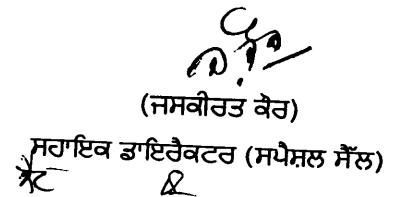 (ਜਸਕੀਰਤ ਕੌਰ)
ਸਹਾਇਕ ਡਾਇਰੈਕਟਰ (ਸਪੈਸ਼ਲ ਸੈੱਲ)